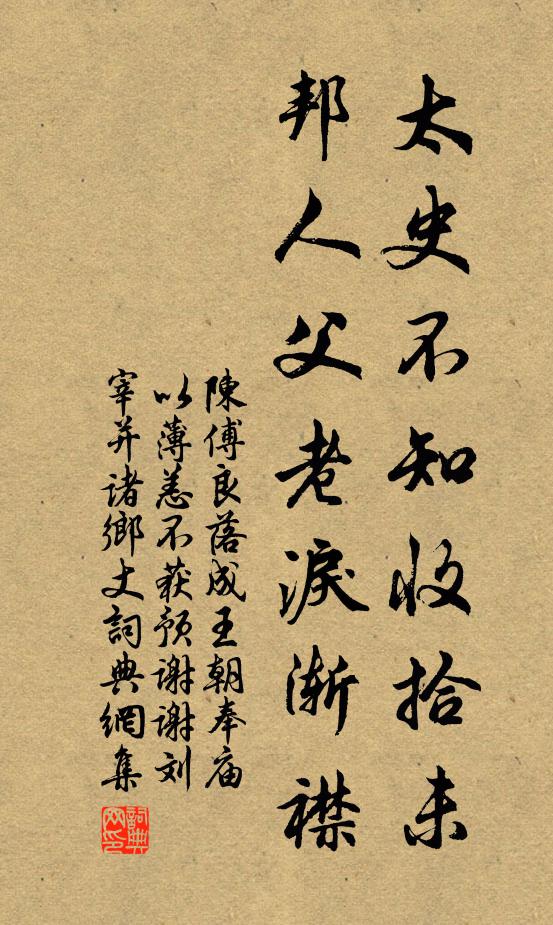 太史不知收拾未
邦人父老淚渐襟
陳傅良落成王朝奉庙
以薄恙不获预谢谢刘
宰并诸鄉丈詞典網集
詞典
网印